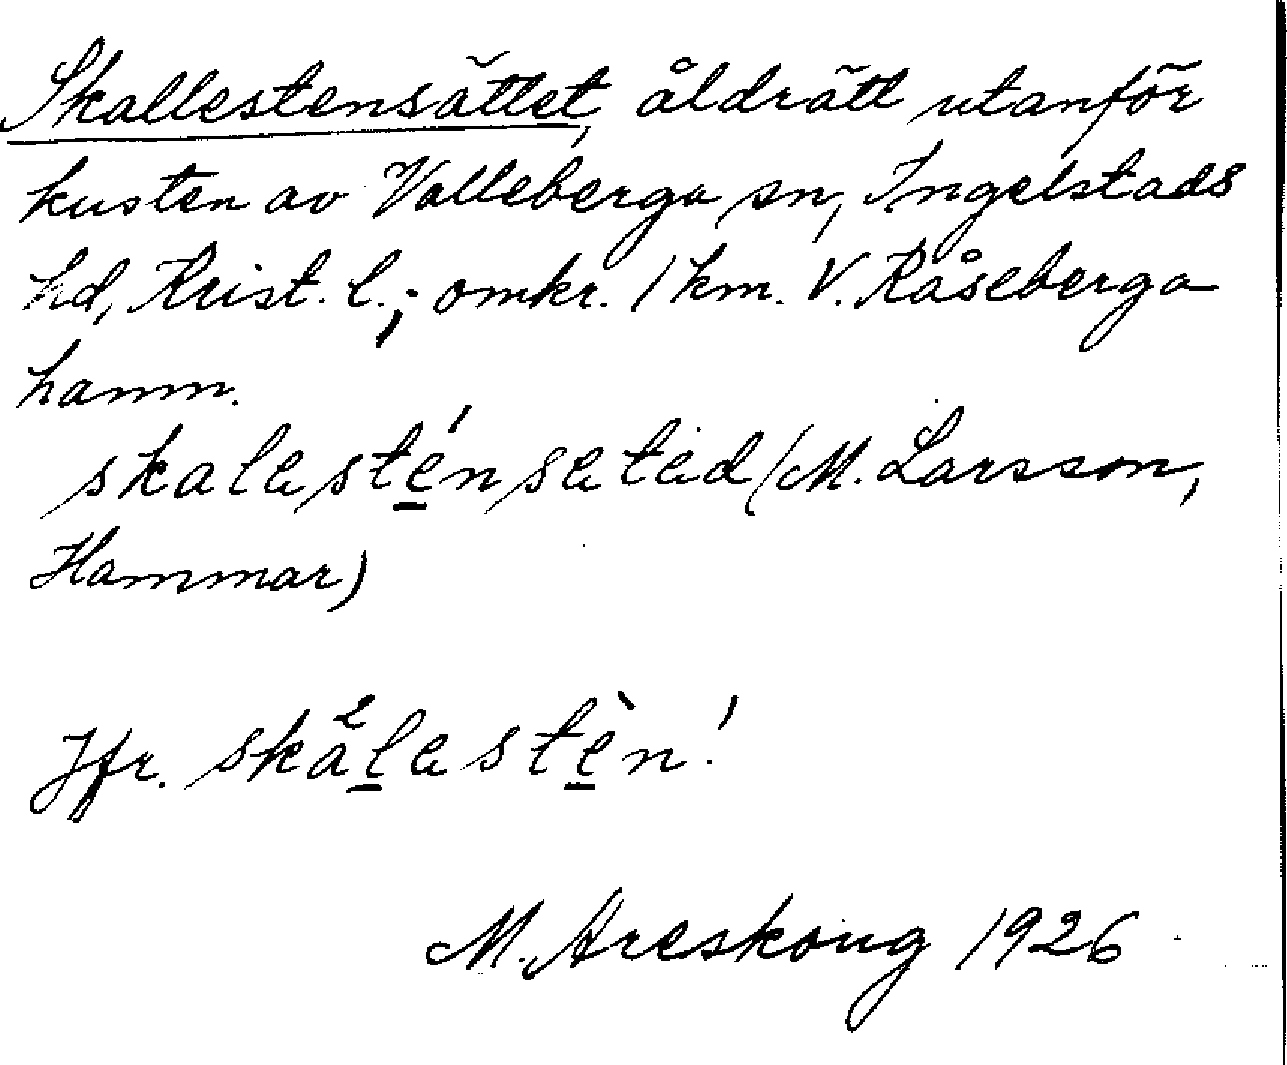 Skallestensättet, åldrätt utanför
kusten av Valleberga sn, Ingelstads
hd, Krist. l.; omkr. 1 km. V. Kåseberga
hamn.
skalesténseted (M. Larsson,
Hammar)
Jfr. skålestèn!
M. Areskoug 1926